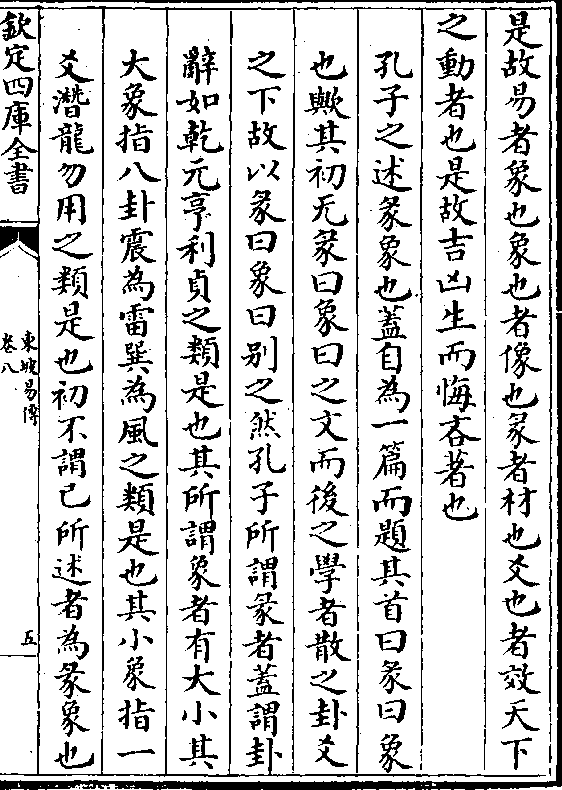 是故易者象也象也者像也彖者材也爻也者效天下
之動者也是故吉凶生而悔吝著也
孔子之述彖象也蓋自為一篇而題其首曰彖曰象
也歟其初无彖曰象曰之文而後之學者散之卦爻
之下故以彖曰象曰别之然孔子所謂彖者蓋謂卦
辭如乾元亨利貞之類是也其所謂象者有大小其
大象指八卦震為雷巽為風之類是也其小象指一
爻潛龍勿用之類是也初不謂已所述者為彖象也
欽定四庫全書
東坡易傳
卷八
五